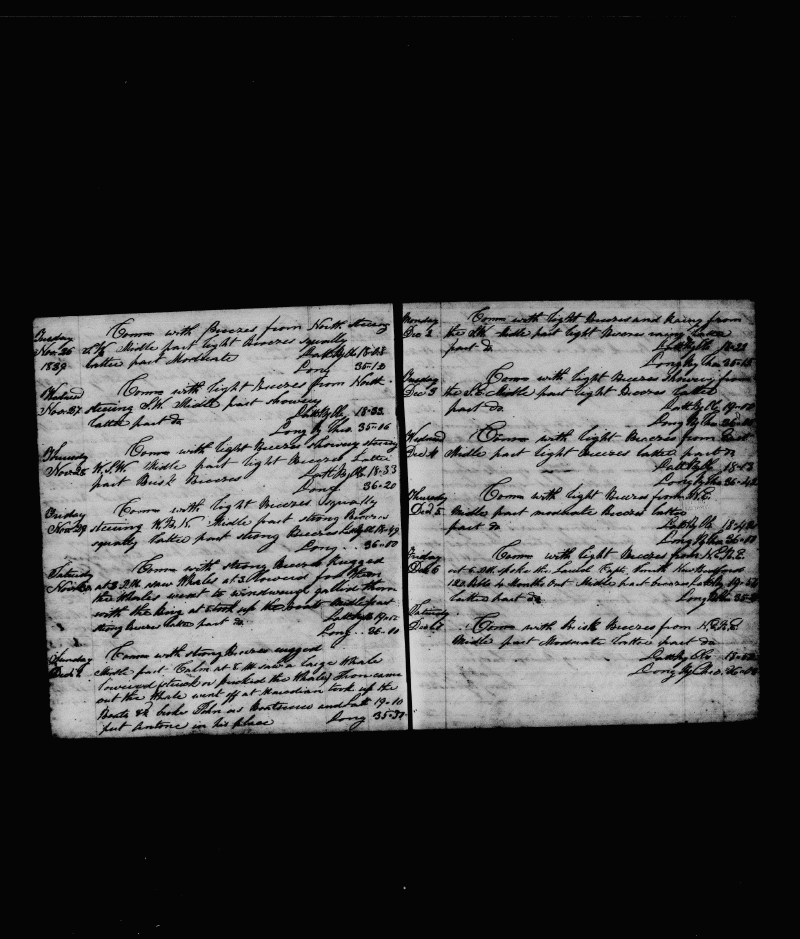 Tuesday Comm with Breezes from North steering
Nov. 26 S.W. Midle part light Breezes squally
1839 latter part Moderate Latt By Ob 18-48
Long 35-12
Comm with light Breezes from North
Nov. 27 steering S.W. Midle part showery
latter part do Latt By Ob. 18-33
Long by Chro. 35-16
Thursday Comm with light Breezes showery steering
Nov. 28 W.S.W. Midle part light Breezes Latter
part Brisk Breezes Latt By Ob 18-33
Long 36-20
Friday Comm with light Breezes squally
Nov. 29 steering Midle part strong Breezes
squally latter part strong Breezes Latt By Ob 18-49
Long .. 36-00
Saturday Comm with strong Breezes Rugged
at 2 P.M. saw Whales at 3 lowered for them
the Whales went to windward gallied them
with the king at took up the boats Midle part
strong Breezes latter part do. Latt By Ob
Long .. 36-10
Sunday Comm with strong Breezes rugged
Dec 1 Midle part Calm at 8 A.M. saw a large Whale
lowered struck or pricked the Whale Iron came
out the Whale went off at Meridian took up the
Boats & broke John as Boatsteerer and Latt 19-10
put Antone in his place Long 35-37
Monday Comm with light Breezes and Rainy from
Dec 2 the S.W. Midle part light Breezes rainy Latter
part do Latt By Ob 18-22
Long By Chro 35-15
Tuesday Comm with light Breezes Showery from
Dec 3 the S.E. Midle part light Breezes Latter
part do Latt By Ob 19-00
Long By Chro
Comm with light Breezes from East
Dec 4 Midle part light Breezes latter part do
Latt By Ob 18-53
Long By Chro 36-42
Thursday Comm with light Breezes from N.E.
Dec 5 Midle part moderate Breezes latter
part do Latt By Ob
Long By Chro
Friday Comm with light Breezes from N.E.
Dec 6 at 6 P.M. spoke the Laurel Capt. New Bedford
122 Bbls 4 Months Out Midle part breezes Latt By
latter part do Long By Chro
Saturday
Comm with Brisk Breezes from
Midle part Moderate Latter part do
Latt by Ob
Long By Chro.